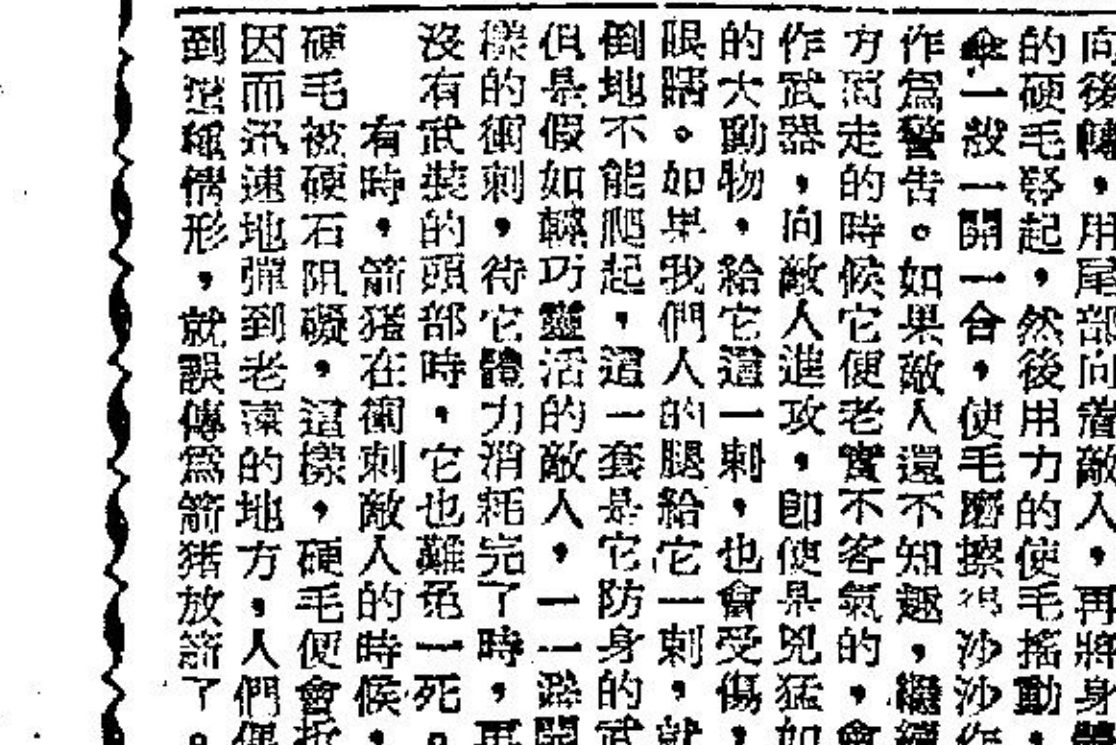 向後轉，用尾部向着敵人，再將身體
的硬毛豎起，然後用力的使毛搖動，
傘一般一開一合，使毛磨擦得沙沙作
作爲警告。如果敵人還不知趣，繼續
方面走的時候它便老實不客氣的，會
作武器，向敵人進攻，即使是兇猛如
的大動物，給它這一刺，也會受傷，
眼瞎。如果我們人的腿給它一刺，就
倒地不能爬起，這一套是它防身的武
但是假如轉巧靈活的敵人，一一避開
樣的衝刺，待它體力消耗完了時，再
沒有武裝的頭部時，它也難免一死。
有時，箭猪在衝刺敵人的時候，
硬毛被硬石阻礙，這樣，硬毛便會折
因而迅速地彈到老遠的地方，人們偶
到這種情形，就誤傳爲箭猪放箭了。